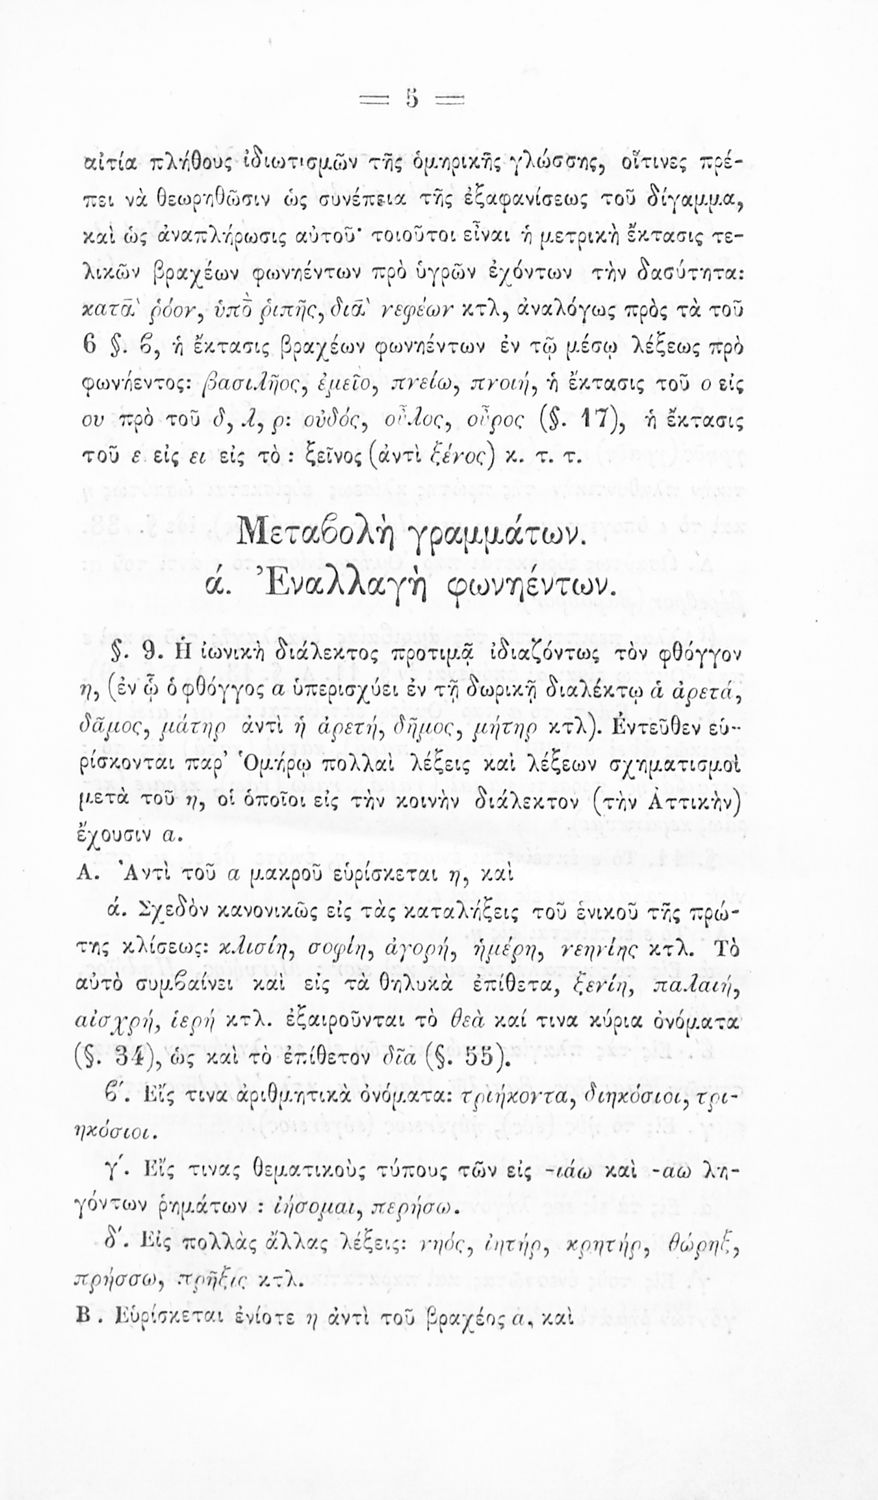 = 5 =
αἰτία πλήθους ἰδιωτισμῶν τῆς ὁμηρικῆς γλώσσης, οἵτινες πρέ-
πει νὰ θεωρηθῶσιν ὡς συνέπεια τῆς ἐξαφανίσεως τοῦ δίγαμμα,
καὶ ὡς ἀναπλήρωσις αὐτοῦ· τοιοῦτοι εἶναι ἡ μετρικὴ ἔκτασις τε-
λικῶν βραχέων φωνηέντων πρὸ ὑγρῶν ἐχόντων τὴν δασύτητα:
κατᾱ̀ ῥόον, ὑπο̄̀ ῥιπῆς, διᾱ̀ νεφέων κτλ, ἀναλόγως πρὸς τὰ τοῦ
6 §. ϐ, ἡ ἔκτασις βραχέων φωνηέντων ἐν τῷ μέσῳ λέξεως πρὸ
φωνήεντος: βασιλῆος, ἐμεῖο, πνείω, πνοιή, ἡ ἔκτασις τοῦ ο εἰς
ου πρὸ τοῦ δ, λ, ρ: οὐδός, οὖλος, οὖρος (§. 17), ἡ ἔκτασις
τοῦ ε εἰς ει εἰς τὸ : ξεῖνος (ἀντὶ ξένος) κ. τ. τ.
Μεταϐολὴ γραμμάτων.
ά. Ἐναλλαγὴ φωνηέντων.
§. 9. Ἡ ἰωνικὴ διάλεκτος προτιμᾷ ἰδιαζόντως τὸν φθόγγον
η, (ἐν ᾧ ὁ φθόγγος α ὑπερισχύει ἐν τῇ δωρικῇ διαλέκτῳ ἁ ἀρετά,
δᾶμος, μάτηρ ἀντὶ ἡ ἀρετή, δῆμος, μήτηρ κτλ). Ἐντεῦθεν εὑ-
ρίσκονται παρ' Ὁμήρῳ πολλαὶ λέξεις καὶ λέξεων σχηματισμοὶ
μετὰ τοῦ η, οἱ ὁποῖοι εἰς τὴν κοινὴν διάλεκτον (τὴν Ἀττικὴν)
ἔχουσιν α.
Α. Ἀντὶ τοῦ α μακροῦ εὑρίσκεται η, καὶ
ά. Σχεδὸν κανονικῶς εἰς τὰς καταλήξεις τοῦ ἑνικοῦ τῆς πρώ-
της κλίσεως: κλισίη, σοφίη, ἀγορή, ἡμέρη, νεηνίης κτλ. Τὸ
αὐτὸ συμϐαίνει καὶ εἰς τὰ θηλυκὰ ἐπίθετα, ξενίη, παλαιή,
αἰσχρή, ἱερή κτλ. ἐξαιροῦνται τὸ θεὰ καί τινα κύρια ὀνόματα
(§. 34), ὡς καὶ τὸ ἐπίθετον δῖα (§. 55).
ϐ'. Εἴς τινα ἀριθμητικὰ ὀνόματα: τριήκοντα, διηκόσιοι, τρι-
ηκόσιοι.
γ'. Εἴς τινας θεματικοὺς τύπους τῶν εἰς -ιάω καὶ -αω λη-
γόντων ῥημάτων : ἰήσομαι, περήσω.
δ'. Εἰς πολλὰς ἄλλας λέξεις: νηός, ἰητήρ, κρητήρ, θώρηξ,
πρήσσω, πρῆξις κτλ.
Β. Εὑρίσκεται ἐνίοτε η ἀντὶ τοῦ βραχέος α, καὶ